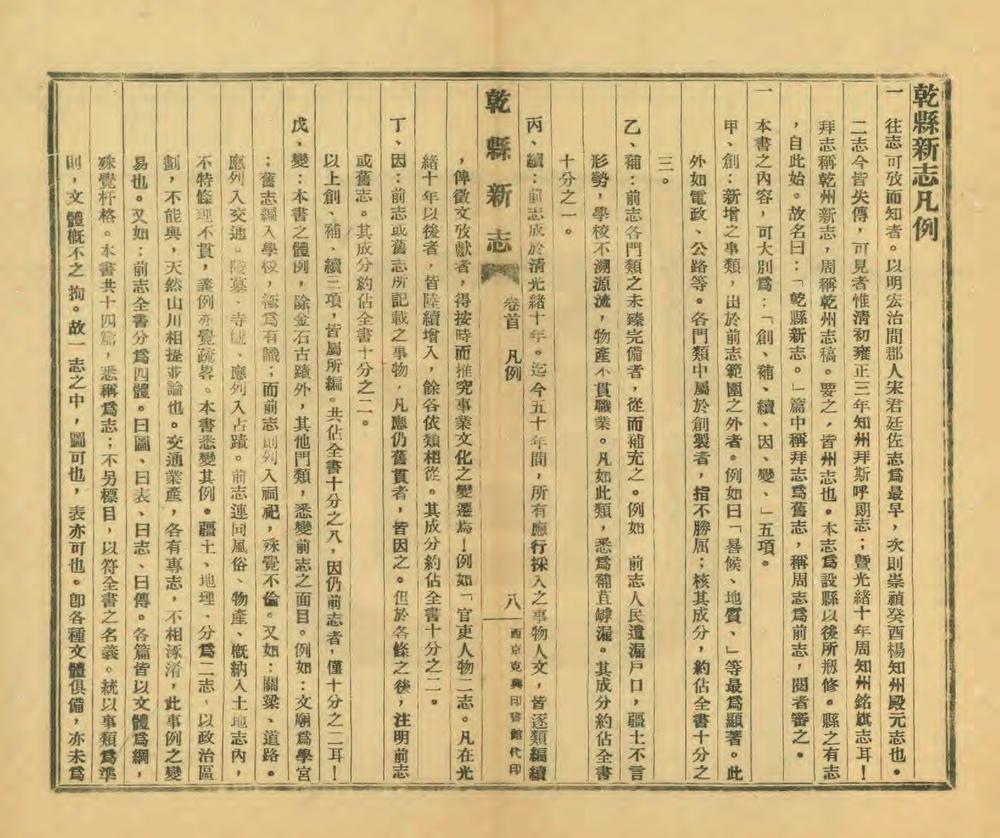 乾縣新志凡例
一　往志可攷而知者。以明宏治間郡人宋君廷佐志爲最早，次則崇禎癸酉楊知州殿元志也。
二志今皆失傳，可見者惟清初雍正三年知州拜斯呼朗志；暨光緒十年周知州銘旗志耳！
拜志稱乾州新志，周稱乾州志稿。要之，皆州志也。本志爲設縣以後所剏修。縣之有志
，自此始。故名曰：「乾縣新志。」篇中稱拜志爲舊志，稱周志爲前志，閱者審之。
一　本書之內容，可大別爲：「創、補、續、因、變、」五項。
甲、創：新增之事類，出於前志範圍之外者。例如曰「晷候、地質、」等最爲顯著。此
外如電政、公路等。各門類中屬於創製者，指不勝屈；核其成分，約佔全書十分之
三。
乙、補：前志各門類之未臻完備者，從而補充之。例如　前志人民遺漏戶口，疆土不言
形勢，學校不溯源流，物產不貫職業。凡如此類，悉爲補苴罅漏。其成分約佔全書
十分之一。
丙、續：前志成於清光緒十年。迄今五十年間，所有應行採入之事物人文，皆逐類編續
乾縣新志　卷首　凡例　八　西京克興印書館代印
，俾徵文攷獻者，得按時而推究事業文化之變遷焉！例如「官吏人物二志。凡在光
緒十年以後者，皆陸續增入，餘各依類相從。其成分約佔全書十分之二。
丁、因：前志或舊志所記載之事物，凡應仍舊貫者，皆因之。但於各條之後，注明前志
或舊志。其成分約佔全書十分之二。
以上創、補、續三項，皆屬所編。共佔全書十分之八，因仍前志者，僅十分之二耳！
戊、變：本書之體例，除金石古蹟外，其他門類，悉變前志之面目。例如：文廟爲學宮
；舊志編入學校，極爲有識；而前志則列入祠祀，殊覺不倫。又如：關梁、道路。
應列入交通。陵墓、寺觀、應列入古蹟。前志連同風俗、物產、槪納入土地志內，
不特條理不貫，義例亦覺疏畧。本書悉變其例。疆土、地理、分爲二志，以政治區
劃，不能與，天然山川相提並論也。交通業產，各有專志，不相涿淆，此事例之變
易也。又如：前志全書分爲四體。曰圖、曰表、曰志、曰傳。各篇皆以文體爲綱，
殊覺杆格。本書共十四篇，悉稱爲志；不另標目，以符全書之名義。統以事類爲準
則，文體槪不之拘。故一志之中，圖可也，表亦可也。卽各種文體俱備，亦未爲